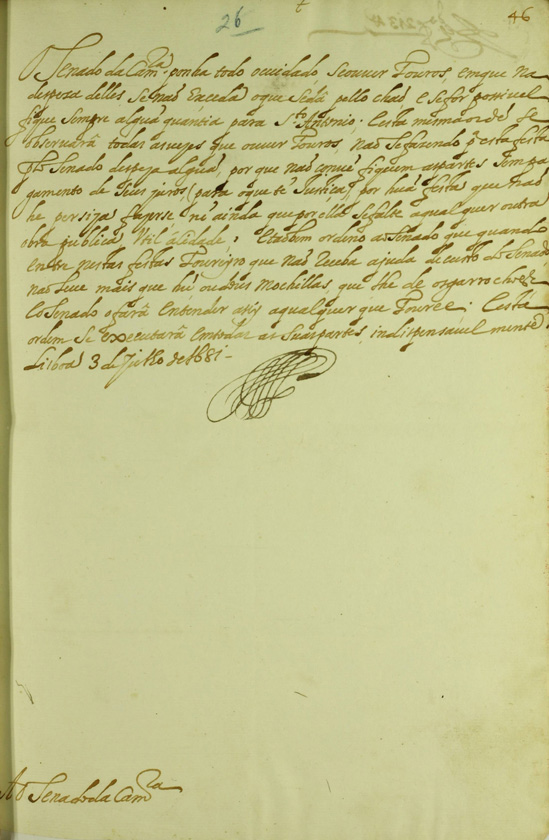 26
46
O Senado da Camra. ponha todo o cuidado, se ouver Touros, em que na
despeza delles se naõ exceda o que será pello chaõ, e se for possivel
fique sempre algũa quantia para Sto. Antonio; e esta mesma ordẽ se
observará todas as vezes que ouver Touros, naõ se fazendo pa. esta festa
plo. Senado despeza algũa, por que naõ convẽ fiquem as partes sem pa
gamento de seus juros (para o que tẽ justiça) por hũa festa que naõ
he perciza fazerse, nẽ ainda que por ella se falte a qual quer outra
obra publica, Util á Cidade; E tambem ordeno ao Senado que quando
entre nestas festas Toureyro que naõ receba ajuda de custo do Senado
naõ leve mais que hũ ou dous Mochillas, que lhe dé os garrochoẽs
e o Senado o fará entender assy a qualquer que Touree. E esta
ordem se executará em todas as suas partes indispensavelmente
Lisboa 3 de Julho de 1681 -
Ao Senado da Camra